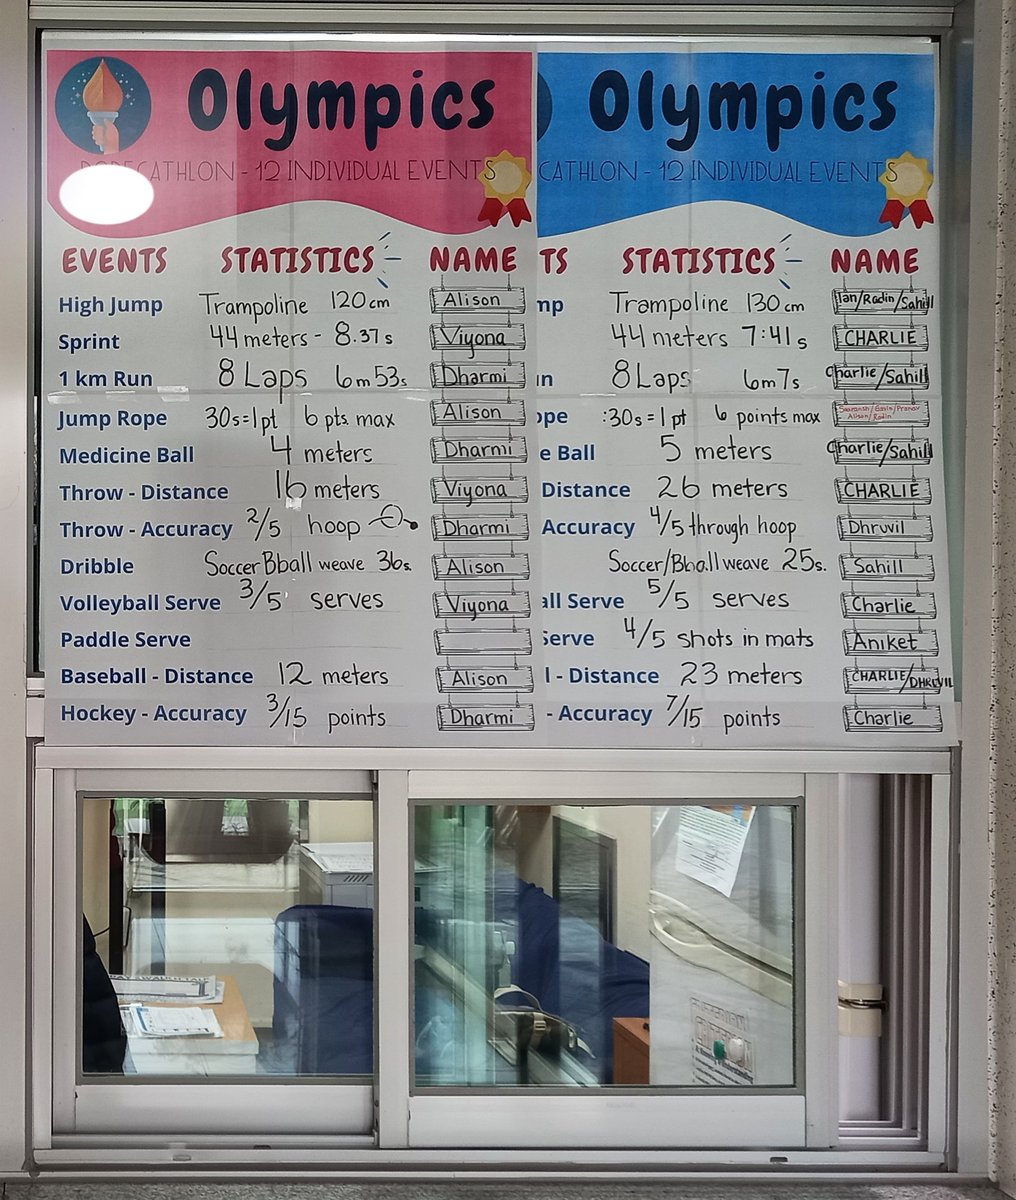 Olympics
CATHLON - 12 INDIVIDUAL EVENTS
EVENTS STATISTICS NAME
High Jump Trampoline 120cm Alison
Sprint 44 meters - 8.37s Viyona
1 km Run 8 Laps 6m53s Dharmi
Jump Rope 30s=1pt 6 pts. max Alison
Medicine Ball 4 meters Dharmi
Throw - Distance 16 meters Viyona
Throw - Accuracy 2/5 hoop Dharmi
Dribble Soccer Bball weave 36s. Alison
Volleyball Serve 3/5 serves Viyona
Paddle Serve
Baseball - Distance 12 meters Alison
Hockey - Accuracy 3/15 points Dharmi
Olympics
CATHLON - 12 INDIVIDUAL EVENTS
TS STATISTICS NAME
mp Trampoline 130cm Ian/Radin/Sahill
44 meters 7:41s CHARLIE
un 8 Laps 6m7s Charlie/Sahill
ope :30s=1pt 6 points max /Pranav Alison/Radin
e Ball 5 meters Charlie/Sahill
Distance 26 meters CHARLIE
Accuracy 4/5 through hoop Dhruvil
Soccer/Bball weave 25s. Sahill
all Serve 5/5 serves Charlie
Serve 4/5 shots in mats Aniket
l - Distance 23 meters CHARLIE/DHRUVIL
- Accuracy 7/15 points Charlie